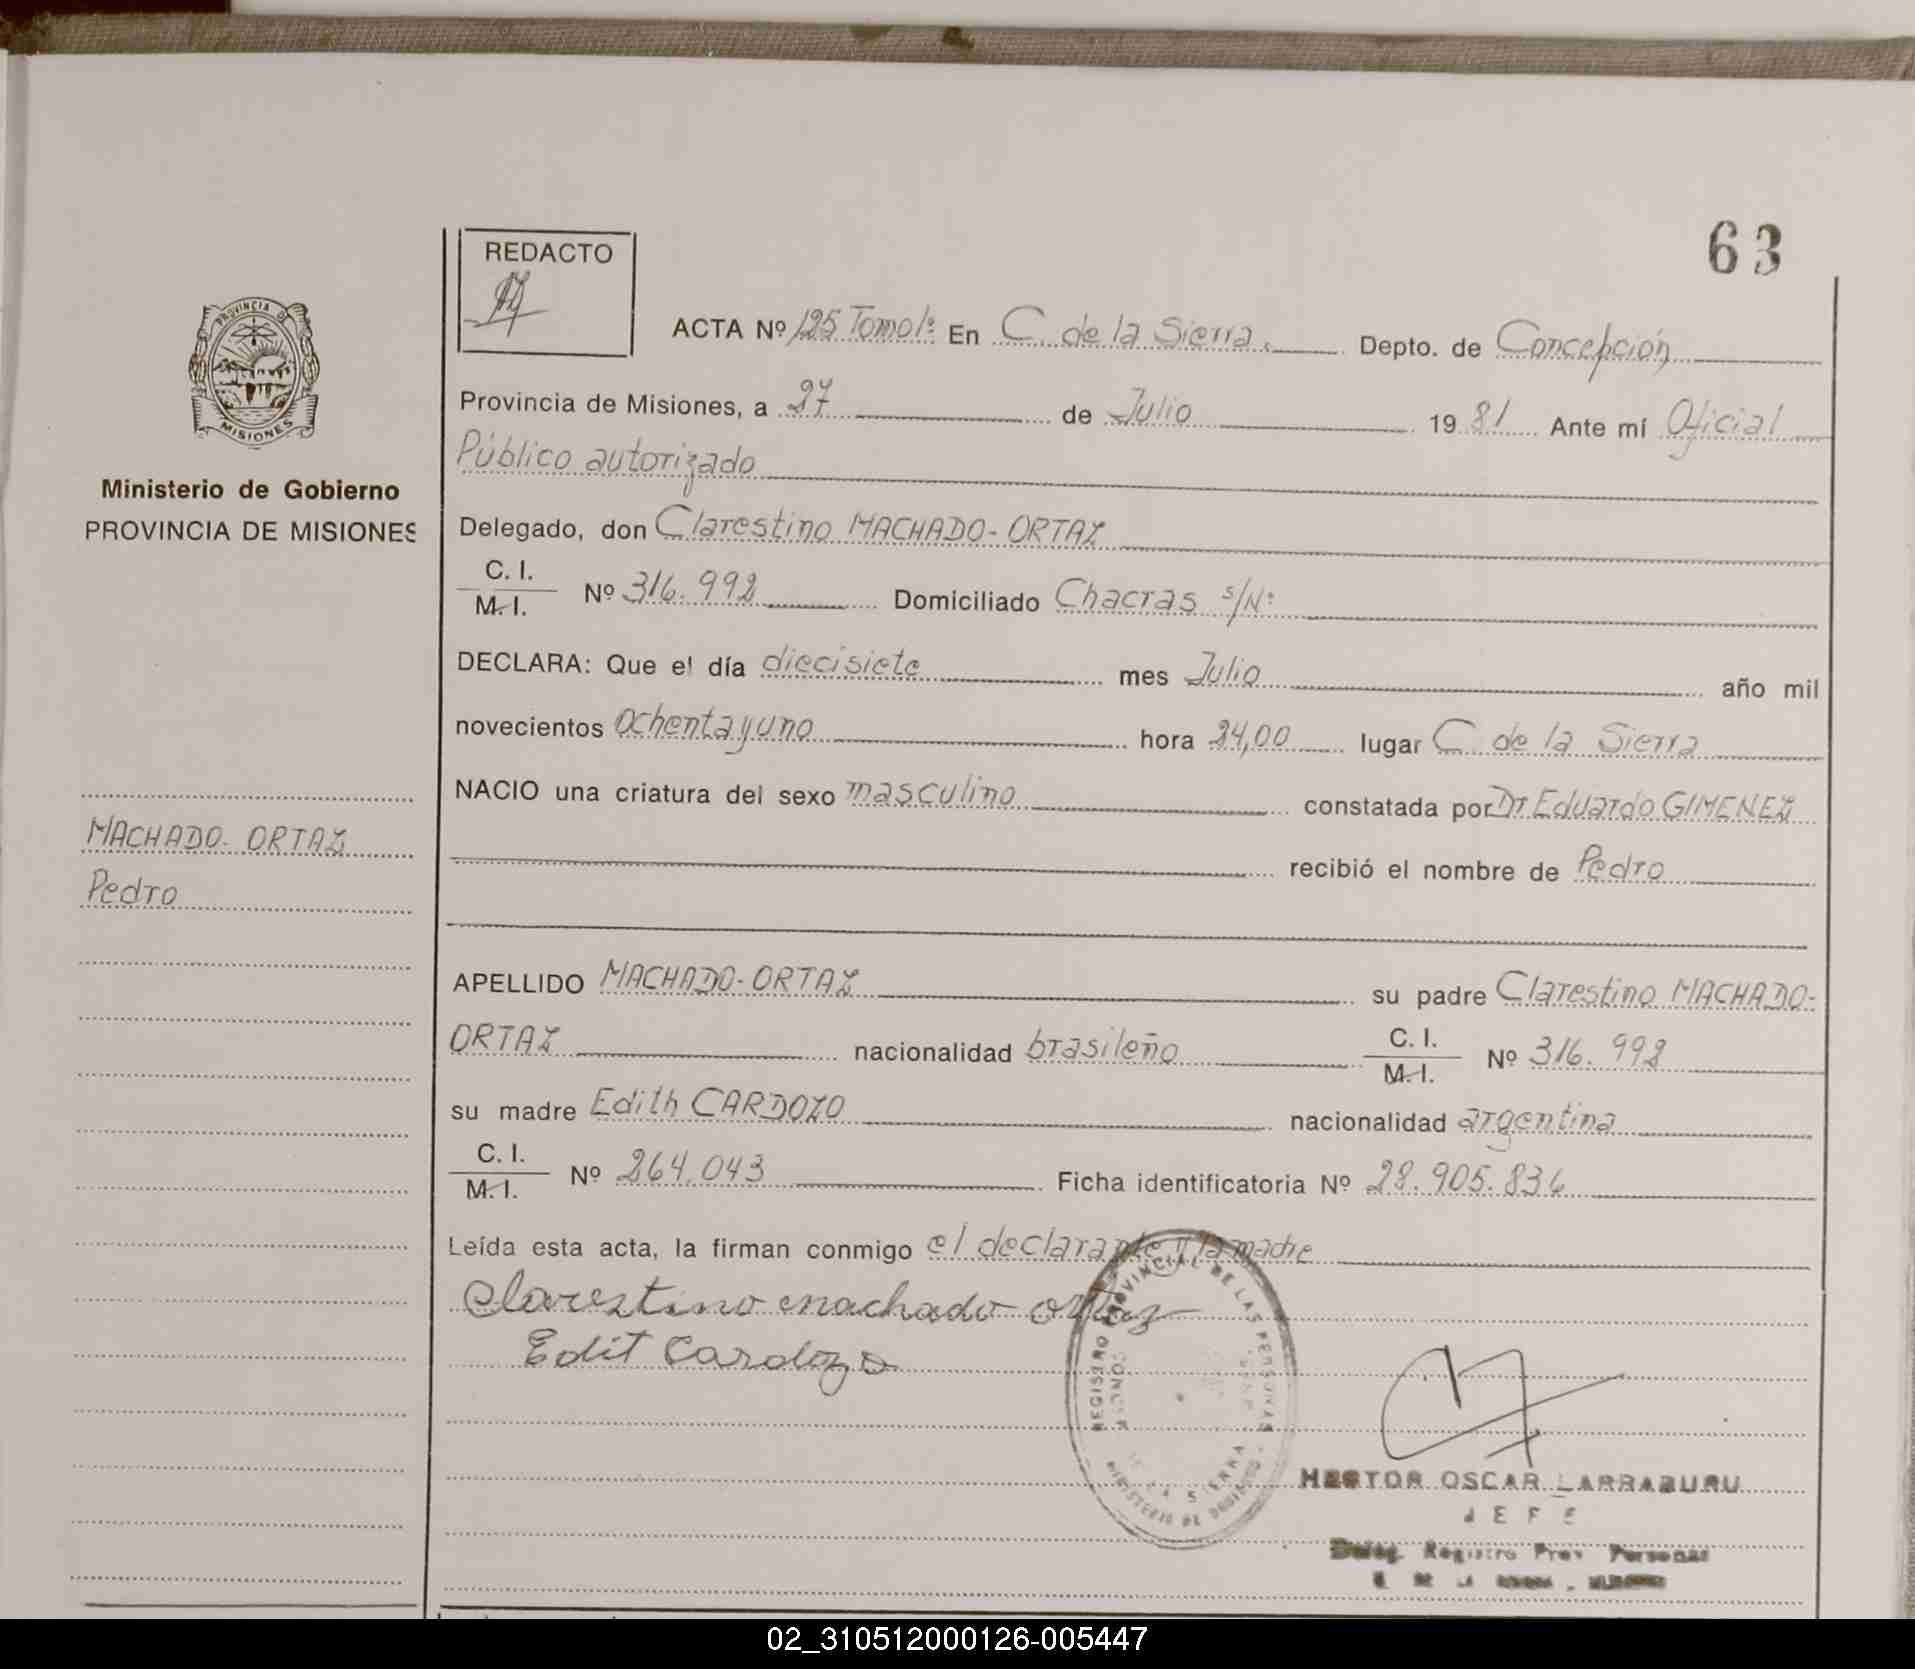 63
REDACTO
PROVINCIA DE
MISIONES
Ministerio de Gobierno
PROVINCIA DE MISIONES
MACHADO- ORTAZ
Pedro
ACTA Nº 125 Tomo 1º En C. de la Sierra. Depto. de Concepción
Provincia de Misiones, a 27 de Julio 1981 Ante mí Oficial
Público autorizado
Delegado, don Clarestino MACHADO-ORTAZ
C. I.
M. I. Nº 316.992 Domiciliado Chacras s/Nº
DECLARA: Que el día diecisiete mes Julio año mil
novecientos ochentayuno hora 24,00 lugar C. de la Sierra
NACIO una criatura del sexo masculino constatada por Dr. Eduardo GIMENEZ
recibió el nombre de Pedro
APELLIDO MACHADO-ORTAZ su padre Clarestino MACHADO-
ORTAZ nacionalidad brasileño C. I.
M. I. Nº 316.992
su madre Edith CARDOZO nacionalidad argentina
C. I.
M. I. Nº 264.043 Ficha identificatoria Nº 28.905.836
Leída esta acta, la firman conmigo el declarante y la madre
Clarestino machado ortaz
Edit Cardozo
REGISTRO PROVINCIAL DE LAS PERSONAS
MINISTERIO DE GOBIERNO
SIERRA
HECTOR OSCAR LARRABURU
JEFE
Deleg. Registro Prov. Personas
DE LA
02_310512000126-005447